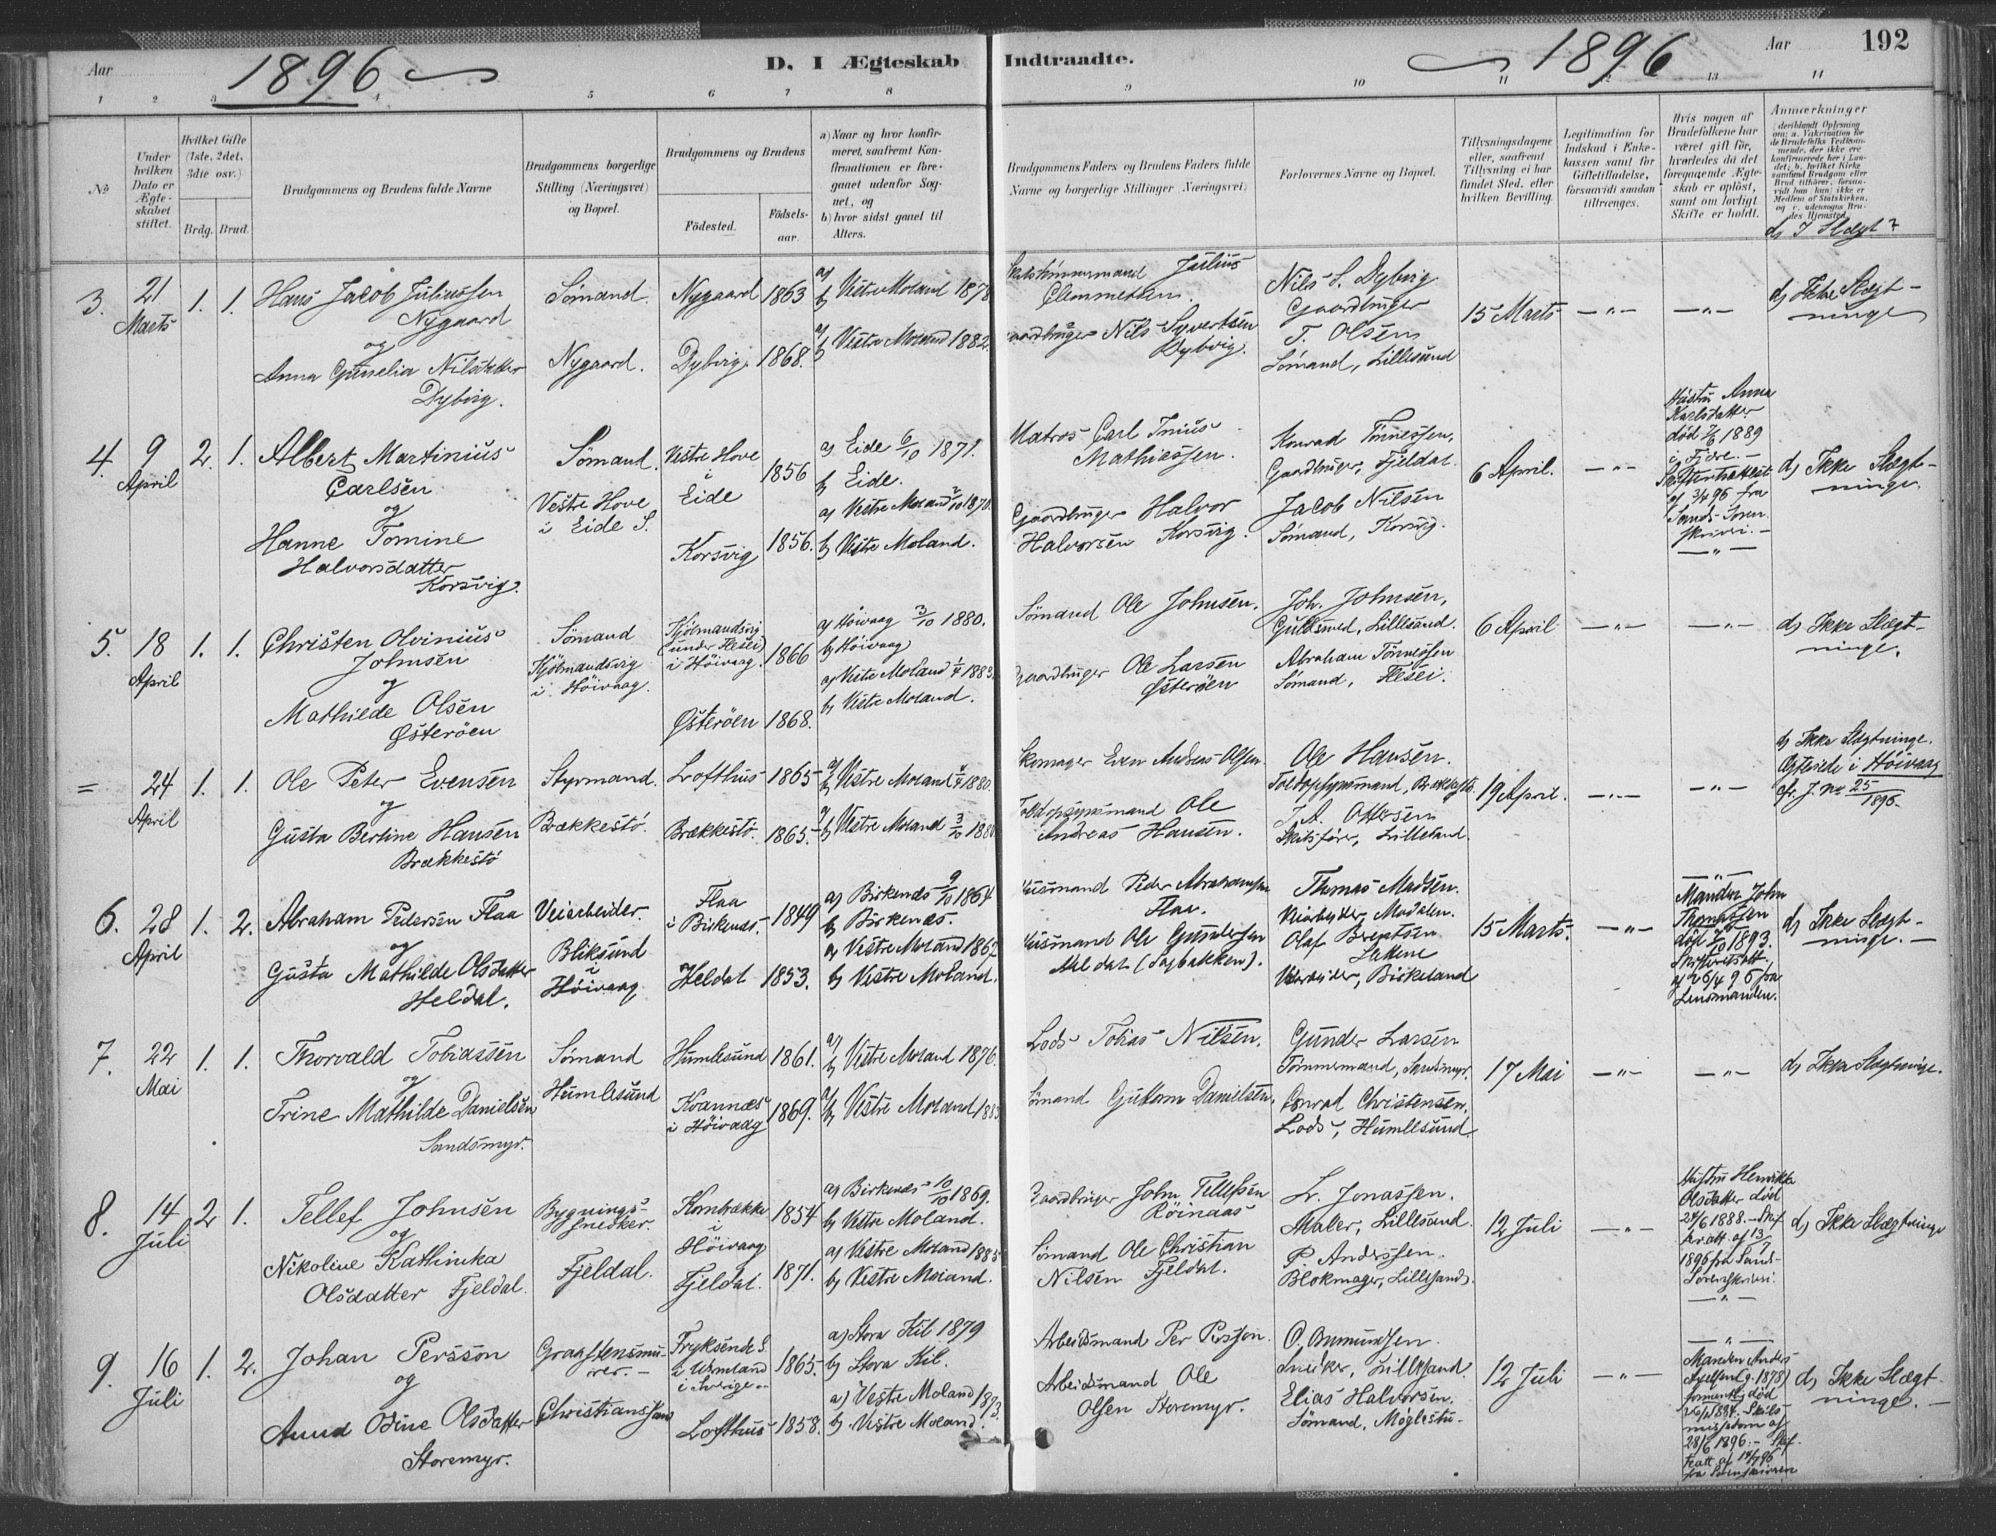 Aar 1896 D. I Ægteskab Indtraadte. 1896 Aar 192
1 2 3 4 5 6 7 8 9 10 11 13 14
No
Under hvilken Dato er Ægteskabet stiftet.
Hvilket Gifte (1ste, 2det, 3die osv.)
Brdg. Brud.
Brudgommens og Brudens fulde Navne
Brudgommens borgerlige Stilling (Næringsvei) og Bopæl.
Brudgommens og Brudens
Fødested.
Fødselsaar.
a) Naar og hvor konfirmeret, saafremt Konfirmationen er foregaaet udenfor Sognet, og
b) hvor sidst gaaet til Alters.
Brudgommens Faders og Brudens Faders fulde Navne og borgerlige Stillinger (Næringsvei)
Forlovernes Navne og Bopæl.
Tillysningsdagene eller, saafremt Tillysning ei har fundet Sted, efter hvilken Bevilling.
Legitimation for Indskud i Enkekassen samt for Giftetilladelse, forsaavidt saadan tiltrænges.
Hvis nogen af Brudefolkene har været gift før, hvorledes da det foregaaende Ægteskab er opløst, samt om lovligt Skifte er holdt.
Anmærkninger
d) I Slægt?
3. 21 Marts 1. 1.
Hans Jacob Juliussen
Nygaard
og
Anna Gunelia Nilsdatter
Dybvig.
Sømand.
Nygaard.
Nygaard 1863
Dybvig. 1868.
a) b) Vestre Moland 1878
a) b) Vestre Moland 1882.
Skibstømmermand Julius
Clemmetsen.
Gaardbruger Nils Syvertsen
Dybvig.
Nils S. Dybvig
Gaardbruger
T. Olsen
Sømand, Lillesand
15 Marts
d) Ikke Slægtninge
4. 9 April 2. 1.
Albert Martinius
Carlsen
og
Hanne Tomine
Halvorsdatter
Korsvig.
Sømand.
Vestre Hove
i Eide S.
Vestre Hove
i
Eide 1856
Korsvig 1856.
a) Eide 6/10 1871.
b) Eide.
a) Vestre Moland 2/10 1870.
b) Vestre Moland.
Matros Carl
Mathiassen.
Gaardbruger Halvor
Halvorsen Korsvig.
Konrad Tønnessen,
Gaardbruger, Fjeldal.
Jacob Nilsen
Sømand, Korsvig.
6 April.
Hustru Anna
Karlsdatter
død 1889
i Fjære.
fra
Sands Sorenskriveri.
d) Ikke Slægtninge.
5. 18 April 1. 1.
Christen Olvinius
Johnsen
og
Mathilde Olsen
Østerøen
Sømand
Kjølmandsvig
i Høivaag.
Kjølmandsvig
(under Hæsei)
i Høivaag. 1866
Østerøen 1868.
a) Høivaag 3/10 1880.
b) Høivaag
a) Vestre Moland 1/4 1883.
b) Vestre Moland.
Sømand Ole Johnsen.
Gaardbruger Ole Larsen
Østerøen
Joh. Johnsen,
Guldsmed, Lillesand.
Abraham Tønnesen
Sømand, Hæsei.
6 April
d) Ikke Slægtninge.
= 24 April 1. 1.
Ole Peter Evensen
og
Gusta Bertine Hansen
Brækkestø
Styrmand.
Brækkestø.
Lofthus 1865
Brækkestø. 1865.
a) b) Vestre Moland 1880.
a) b) Vestre Moland 3/10
Skomager Even Andreas Olsen.
Toldopsynsmand Ole
Andreas Hansen.
Ole Hansen.
Toldopsynsmand, Brækkestø
A. Ottersen
Skibsfører, Lillesand.
19 April.
d) Ikke Slægtninge.
i Høivaag
cfr. J. No 25/1896.
6. 28 April 1. 2.
Abraham Pedersen Flaa
og
Gusta Mathilde Olsdatter
Heldal.
Veiarbeider.
Bliksund
i
Høivaag
Flaa
i Birkenes. 1849
Heldal 1853.
a) Birkenes 9/10 1864
b) Birkenes.
a) Vestre Moland
b) Vestre Moland.
Husmand Peder Abrahamsen
Flaa.
Husmand Ole Gundersen
Thomas Madsen.
Veiarbeider, Mødalen.
Olaf Berntsen
Veiarbeider, Birkeland
15 Marts.
Manden John
Thomassen
død 1893.
26/4 96 fra
Lensmanden.
d) Ikke Slægtninge.
7. 22 Mai 1. 1.
Thorvald Tobiassen
og
Trine Mathilde Danielsen
Sandsmyr.
Sømand
Humlesund
Humlesund 1861.
Kvannæs
i Høivaag 1869.
a) b) Vestre Moland 1876.
a) b) Vestre Moland
Lods Tobias Nilsen.
Sømand Guttorm Danielsen.
Gunder Larsen
Tømmermand, Sandsmyr.
Conrad Christensen.
Lods, Humlesund.
17 Mai
d) Ikke Slægtninge.
8. 14 Juli 2. 1.
Tellef Johnsen
og
Nikoline Kathinka
Olsdatter Fjeldal.
Bygningssnedker.
Fjeldal.
Kornbrække
i
Høivaag 1854
Fjeldal. 1871.
a) Birkenes 10/10 1869.
b) Vestre Moland.
a) Vestre Moland 1885
b) Vestre Moland.
Gaardbruger John Tellefsen
Røinaas
Sømand Ole Christian
Nilsen Fjeldal.
Jonassen.
Maler, Lillesand.
P. Anderssen.
Blokmager, Lillesand.
12 Juli
Hustru Henrikke
Olsdatter død
1888.
1896 fra Sands
Sorenskriveri.
d) Ikke Slægtninge
9. 16 Juli 1. 2.
Johan Persson
og
Anna Odine Olsdatter
Storemyr.
Graastensmurer.
Christianssand
Fryksende S.
i Wermland
i Sverige 1865.
Lofthus 1858.
a) Stora Kil 1879
b) Stora Kil.
a) Vestre Moland 1873.
b) Vestre Moland.
Arbeidsmand Per Persson.
Arbeidsmand Ole
Olsen Storemyr.
O. Omundsen.
Snedker, Lillesand.
Elias Halvorsen.
Sømand, Møglestu.
12 Juli
Manden Anders
død
1884.
28/6 1896.
d) Ikke Slægtninge.